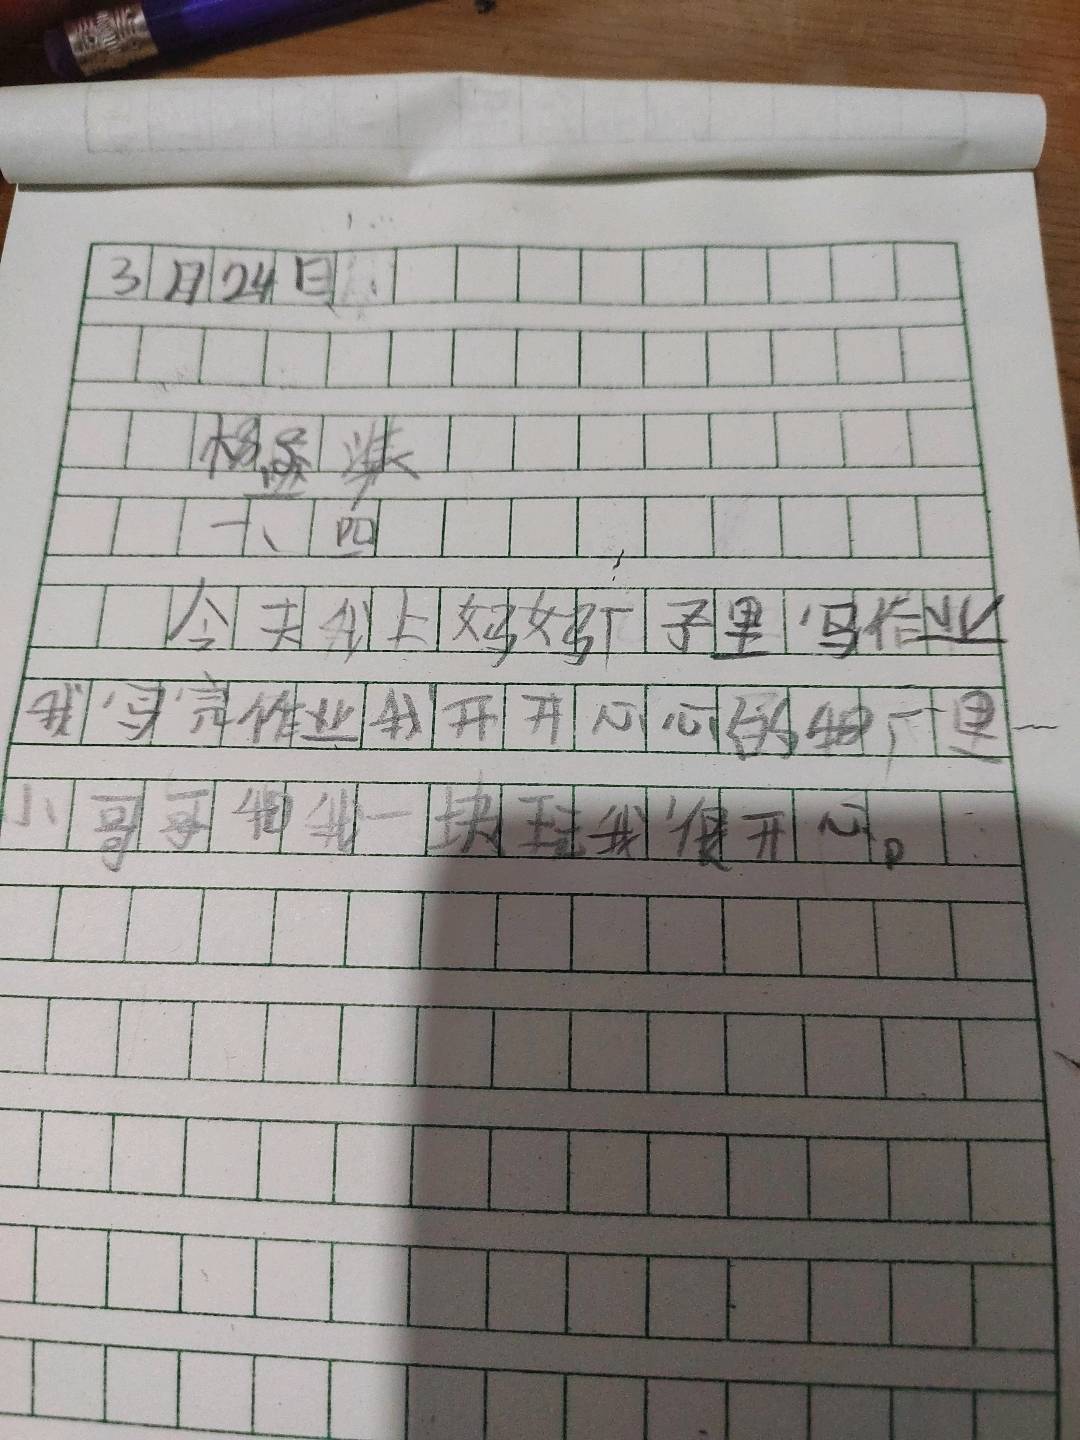 3月24日
杨
一、四
今天我上好好厂子里写作业
我写完作业我开开心心的和厂里一
小哥哥和我一块玩我很开心。